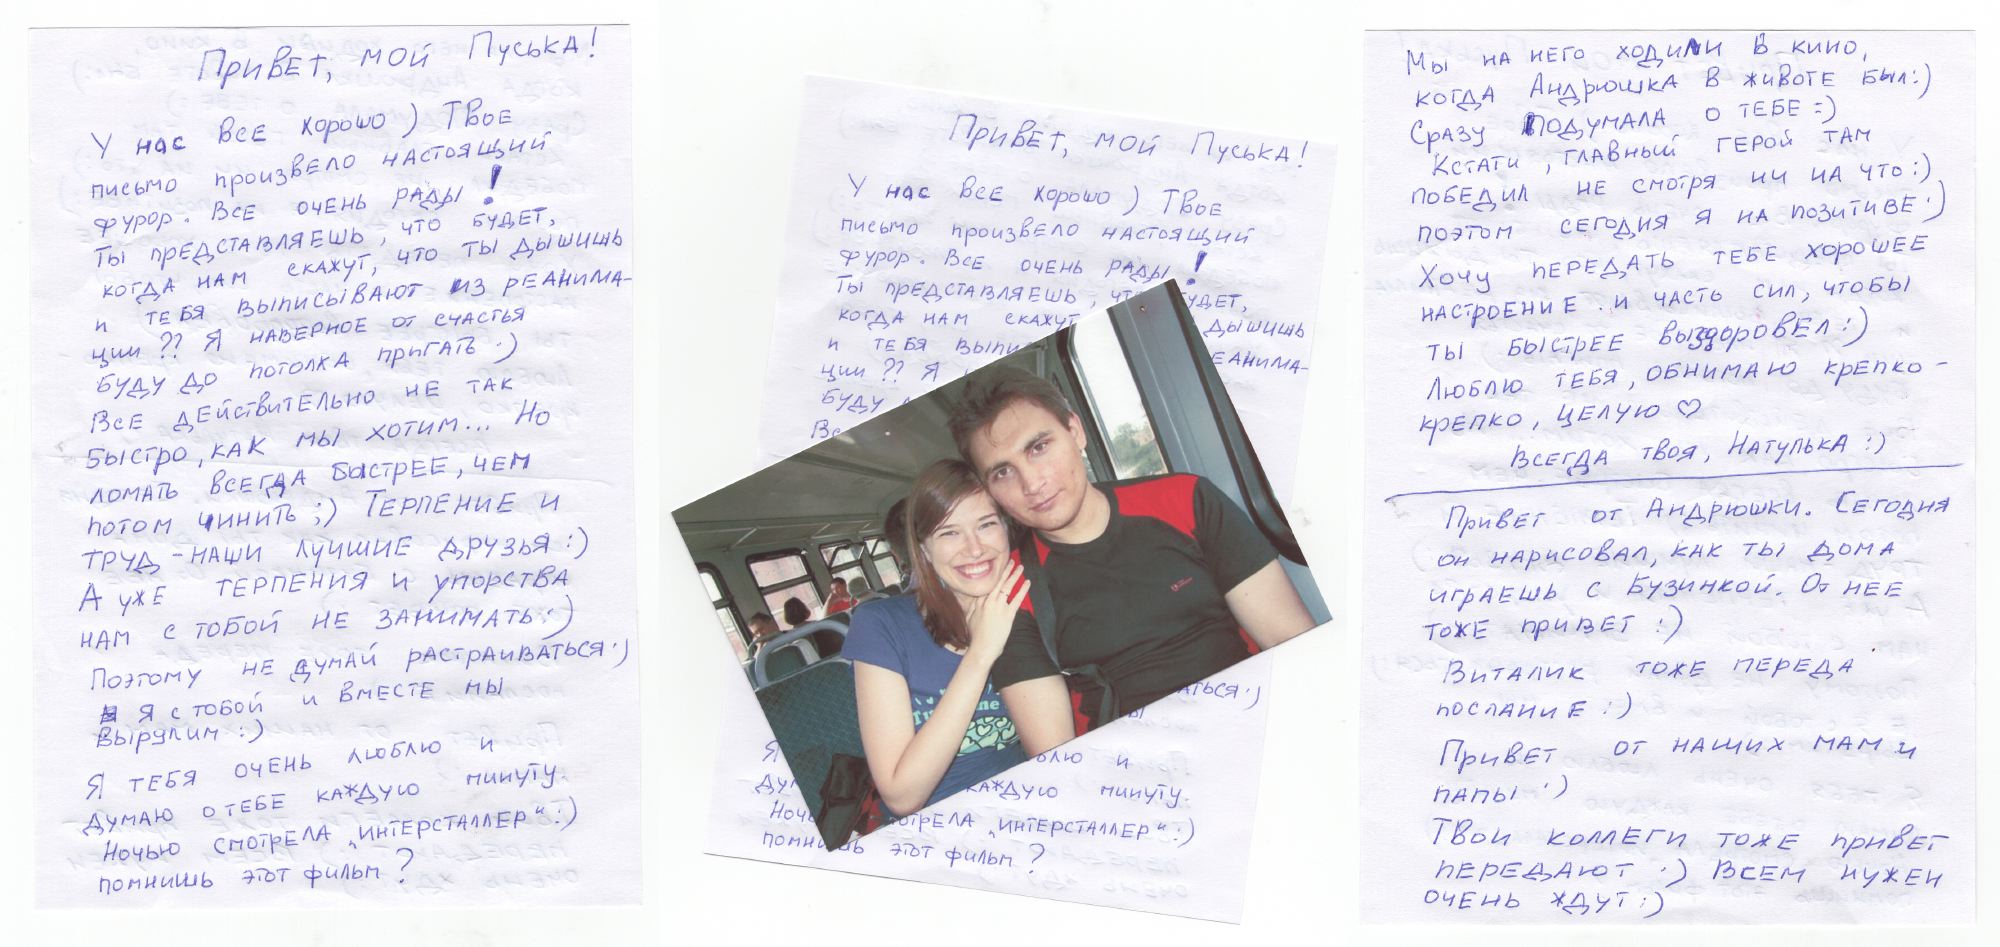 Привет, мой Пуська!
У нас все хорошо) Твое
письмо произвело настоящий
фурор. Все очень рады!
Ты представляешь, что будет,
когда нам скажут, что ты дышишь
и тебя выписывают из реанима-
ции?? Я наверное от счастья
буду до потолка пригать:)
Все действительно не так
быстро, как мы хотим... Но
ломать всегда быстрее, чем
потом чинить;) Терпение и
труд - наши лучшие друзья:)
А уже терпения и упорства
нам с тобой не занимать:)
Поэтому не думай растраиваться:)
Я с тобой и вместе мы
вырулим:)
Я тебя очень люблю и
думаю о тебе каждую минуту.
Ночью смотрела „Интерсталлер“:)
помнишь этот фильм?
Привет, мой Пуська!
У нас все хорошо) Твое
письмо произвело настоящий
фурор. Все очень рады!
Ты представляешь, чт удет,
когда нам скажут дышишь
и тебя выпис еанима-
ции?? Я
буду
Вс
аться:)
ы
Я блю и
дум каждую минуту.
Ночь мотрела „Интерсталлер“:)
помнишь этот фильм?
Мы на него ходили в кино,
когда Андрюшка в животе был:)
Сразу подумала о тебе:)
Кстати, главный герой там
победил не смотря ни на что:)
поэтом сегодня я на позитиве:)
Хочу передать тебе хорошее
настроение. и часть сил, чтобы
ты быстрее выздоровел:)
Люблю тебя, обнимаю крепко-
крепко, целую ♡
Всегда твоя, Натулька:)
Привет от Андрюшки. Сегодня
он нарисовал, как ты дома
играешь с Бузинкой. От нее
тоже привет:)
Виталик тоже переда
послание:)
Привет от наших мам и
папы:)
Твои коллеги тоже привет
передают:) Всем нужен
очень ждут:)